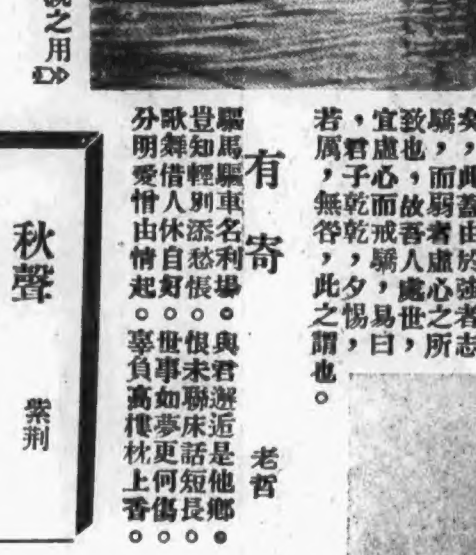 矣,此蓋由於強者志
驕,而弱者虛心之所
致也,故吾人處世,
宜虛心而戒驕,易曰
,君子乾乾,夕惕,
若厲,無咎,此之謂也。
有寄
老哲
驅馬驅車名利場。與君邂逅是他鄉。
豈知輕別添愁悵。恨未聯床話短長。
歌舞借人休自好。世事如夢更何傷。
分明愛憎由情起。辜負高樓枕上香。
之用
秋聲
紫荊